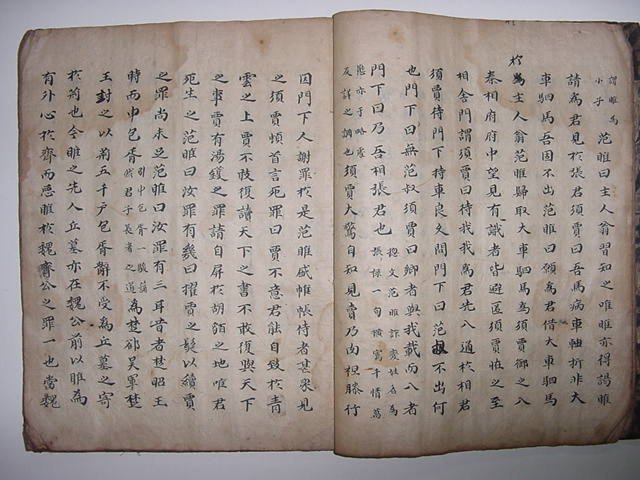 謂睢為小子范睢曰主人翁習知之唯睢亦得謁睢
請為君見於張君須賈曰吾馬病車軸折非大
車駟馬吾固不出范睢曰願為君借大車駟馬
於為主人翁范睢歸取大車駟馬為須賈御之入
秦相府府中望見有識者皆避匿須賈怪之至
相舍門謂須賈曰待我我為君先入通於相君
須賈待門下持車良久問門下曰范叔不出何
也門下曰無范叔須賈曰鄉者與我載而入者
門下曰乃吾相張君也總文范睢詐變姓名為張祿一句
反詳之調也須賈大驚自知見賣乃肉袒膝行
因門下人謝罪於是范睢盛帷帳侍者甚眾見
之須賈頓首言死罪曰賈不意君能自致於青
雲之上賈不敢復讀天下之書不敢復與天下
之事賈有湯鑊之罪請自屏於胡貊之地唯君
死生之范睢曰汝罪有幾曰擢賈之髮以續賈
之罪尚未足范睢曰汝罪有三耳昔者楚昭王
時而申包胥引申包胥一段藹然君子長者之道為楚卻吳軍楚
王封之以荊五千戶包胥辭不受為丘墓之寄
於荊也今睢之先人丘墓亦在魏公前以睢為
有外心於齊而惡睢於魏齊公之罪一也當魏